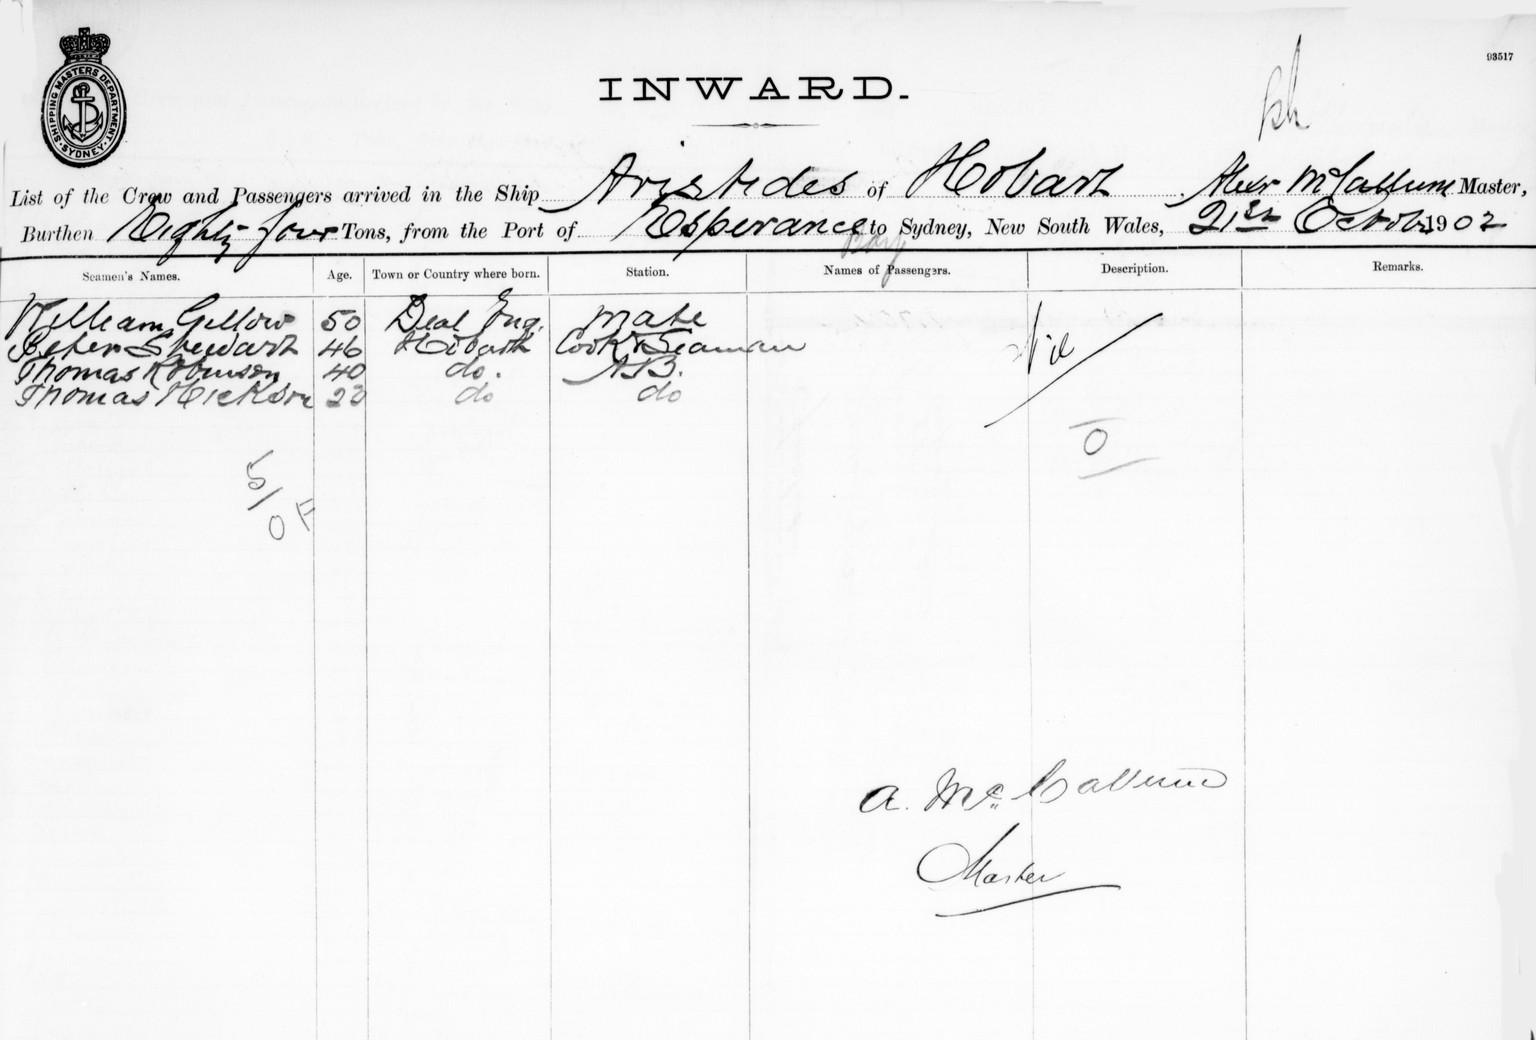 93517
SHIPPING MASTERS DEPARTMENT
SYDNEY
INWARD.
List of the Crew and Passengers arrived in the Ship Aristides of Hobart, Alexr McCallum Master,
Burthen Eighty four Tons, from the Port of Esperance Bay to Sydney, New South Wales, 21st October 1902
Seamen's Names. Age. Town or Country where born. Station. Names of Passengers. Description. Remarks.
William Gillow 50 Deal Eng. Mate Nil
Peter Stewart 46 Hobart Cook & Seaman
Thomas Robinson 40 do. AB.
Thomas Hickson 23 do do
O
5/
O F
A. McCallum
Master